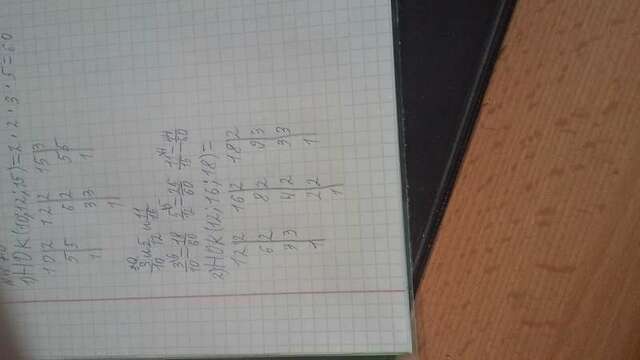 1) НОК (10;12;15) = 2 · 2 · 3 · 5 = 60
10|2 12|2 15|3
5|5 6|2 5|5
1| 3|3 1|
1|
3/10 и 5/12 и 11/15
3/10 = 18/60 5/12 = 25/60 11/15 = 44/60
2) НОК (12; 16; 18) =
12|2 16|2 18|2
6|2 8|2 9|3
3|3 4|2 3|3
1| 2|2 1|
1|